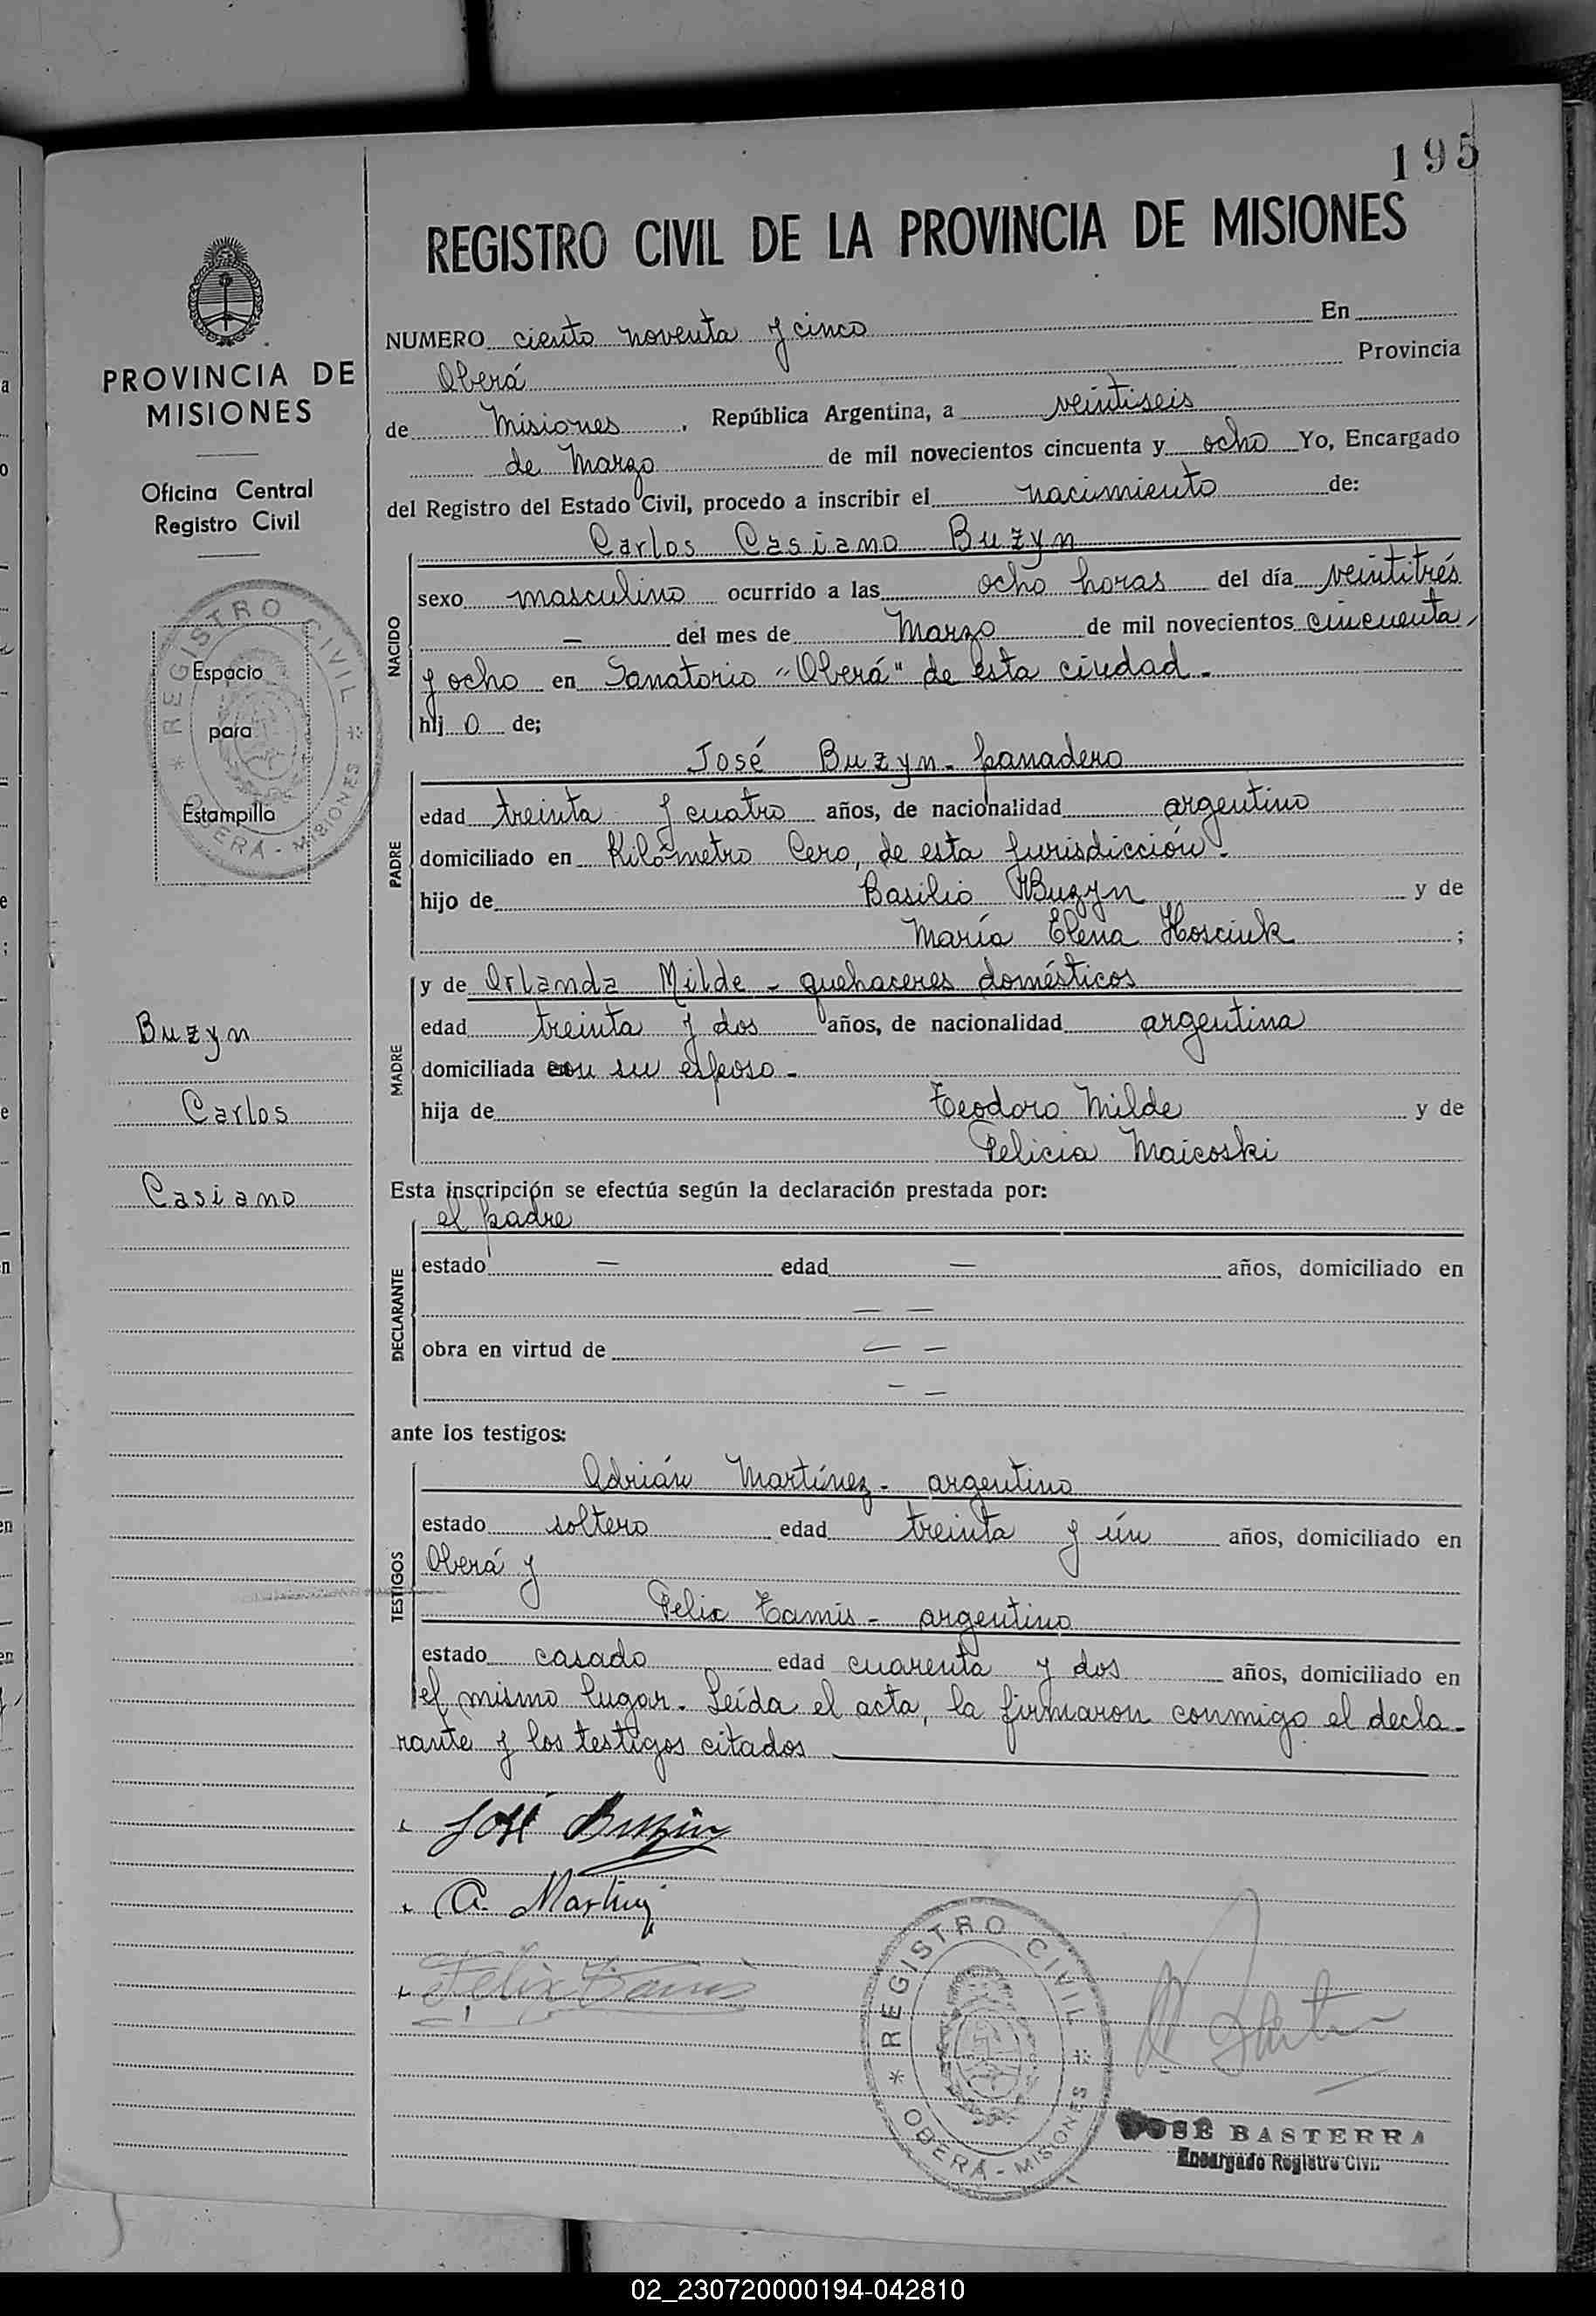 195
REGISTRO CIVIL DE LA PROVINCIA DE MISIONES
PROVINCIA DE
MISIONES
Oficina Central
Registro Civil
REGISTRO CIVIL
OBERÁ - MISIONES
Espacio
para
Estampilla
Buzyn
Carlos
Casiano
NUMERO ciento noventa y cinco En
Oberá Provincia
de Misiones, República Argentina, a veintiseis
de Marzo de mil novecientos cincuenta y ocho Yo, Encargado
del Registro del Estado Civil, procedo a inscribir el nacimiento de:
NACIDO
Carlos Casiano Buzyn
sexo masculino ocurrido a las ocho horas del día veintitrés
— del mes de Marzo de mil novecientos cincuenta
y ocho en Sanatorio "Oberá" de esta ciudad.-
hij o de;
PADRE
José Buzyn - panadero
edad treinta y cuatro años, de nacionalidad argentino
domiciliado en Kilómetro Cero, de esta jurisdicción.-
hijo de Basilio Buzyn y de
María Elena Hosciuk ;
MADRE
y de Orlanda Milde - quehaceres domésticos
edad treinta y dos años, de nacionalidad argentina
domiciliada con su esposo -
hija de Teodoro Milde y de
Felicia Maicoski
Esta inscripción se efectúa según la declaración prestada por:
DECLARANTE
el padre
estado — edad — años, domiciliado en
— —
obra en virtud de — —
— —
ante los testigos:
TESTIGOS
Adrián Martínez - argentino
estado soltero edad treinta y ún años, domiciliado en
Oberá y
Felix Tamis - argentino
estado casado edad cuarenta y dos años, domiciliado en
el mismo lugar. Leída el acta, la firmaron conmigo el decla-
rante y los testigos citados
José Buzin
A. Martinez
Felix Tamis
REGISTRO CIVIL
OBERÁ - MISIONES
JOSÉ BASTERRA
Encargado Registro Civil
02_230720000194-042810